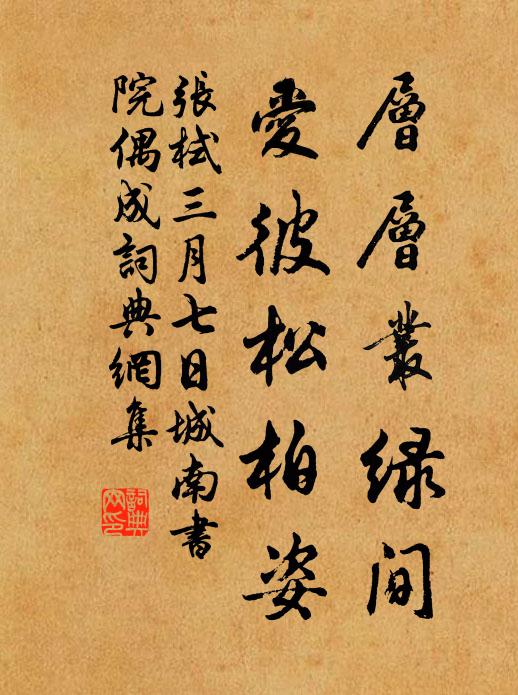 層層叢緑间
愛彼松柏姿
張栻三月七日城南书
院偶成詞典網集
詞典
网印